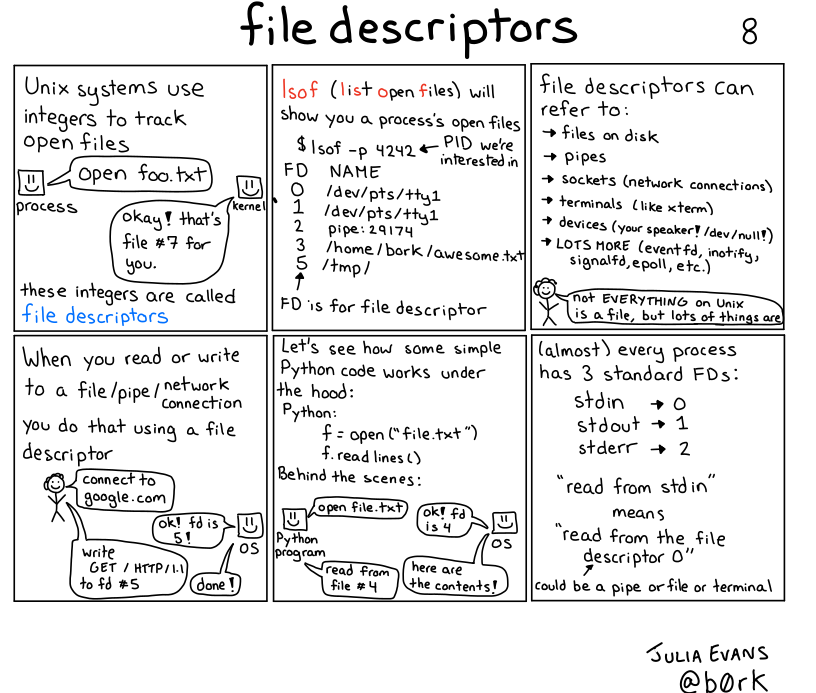 file descriptors
8
Unix systems use
integers to track
open files
open foo.txt
process
kernel
okay! that's
file #7 for
you.
these integers are called
file descriptors
lsof (list open files) will
show you a process's open files
$ lsof -p 4242 ← PID we're
interested in
FD NAME
0 /dev/pts/tty1
1 /dev/pts/tty1
2 pipe:29174
3 /home/bork/awesome.txt
5 /tmp/
FD is for file descriptor
file descriptors can
refer to:
→ files on disk
→ pipes
→ sockets (network connections)
→ terminals (like xterm)
→ devices (your speaker! /dev/null!)
→ LOTS MORE (eventfd, inotify,
signalfd, epoll, etc.)
not EVERYTHING on Unix
is a file, but lots of things are
When you read or write
to a file/pipe/network
connection
you do that using a file
descriptor
connect to
google.com
ok! fd is
5!
OS
write
GET / HTTP/1.1
to fd #5
done!
Let's see how some simple
Python code works under
the hood:
Python:
f = open("file.txt")
f.readlines()
Behind the scenes:
open file.txt
ok! fd
is 4
Python
program
OS
read from
file #4
here are
the contents!
(almost) every process
has 3 standard FDs:
stdin → 0
stdout → 1
stderr → 2
"read from stdin"
means
"read from the file
descriptor 0"
could be a pipe or file or terminal
JULIA EVANS
@b0rk